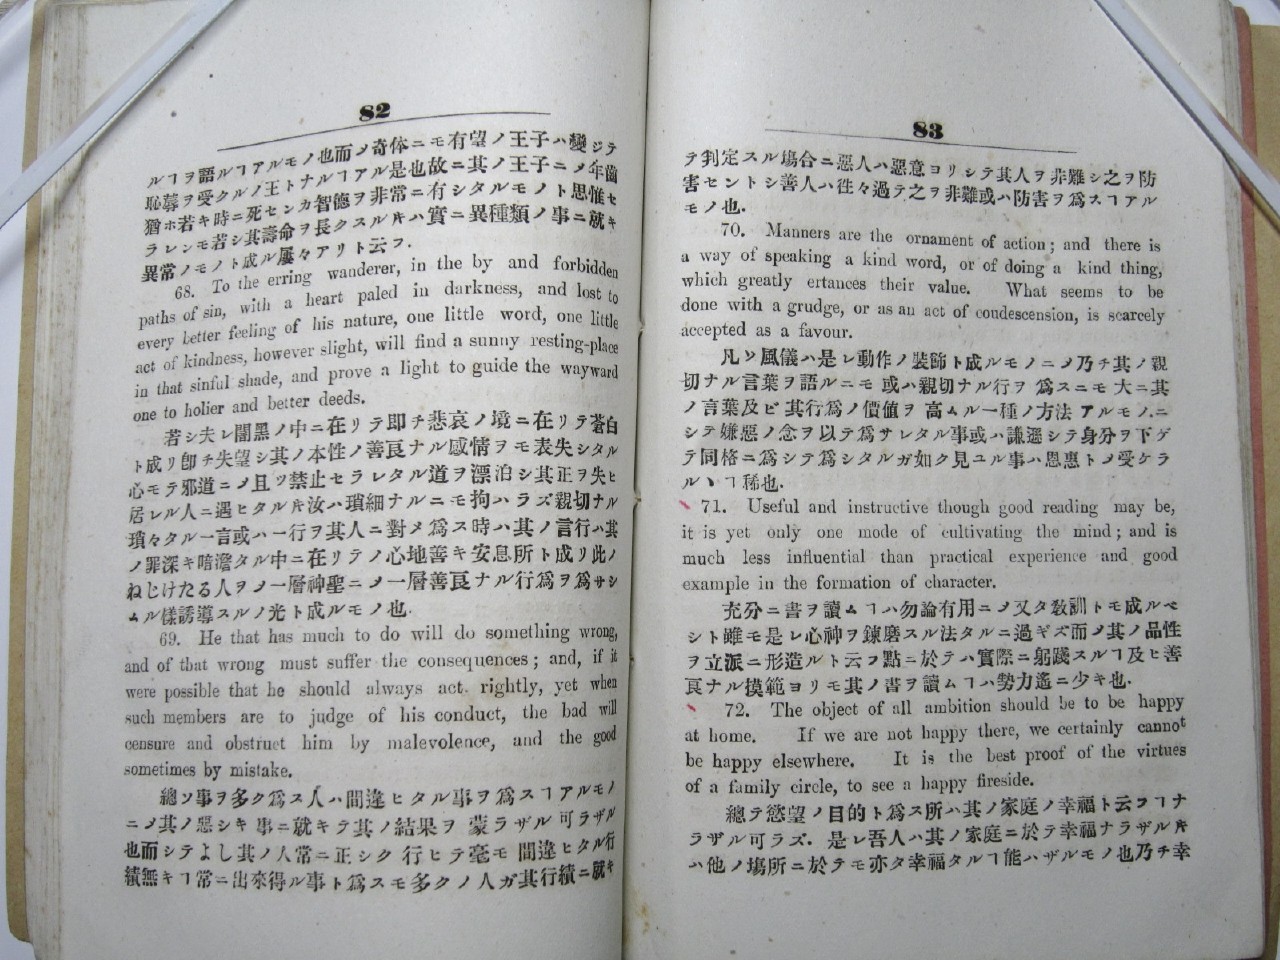 82
ルヿヲ語ルヿアルモノ也而ノ奇体ニモ有望ノ王子ハ變ジテ
恥辱ヲ受クルノ王トナルヿアル是也故ニ其ノ王子ニメ年齒
猶ホ若キ時ニ死センカ智德ヲ非常ニ有シタルモノト思惟セ
ラレンモ若シ其壽命ヲ長クスルキハ實ニ異種類ノ事ニ就キ
異常ノモノト成ル屢々アリト云フ.
68. To the erring wanderer, in the by and forbidden
paths of sin, with a heart paled in darkness, and lost to
every better feeling of his nature, one little word, one little
act of kindness, however slight, will find a sunny resting-place
in that sinful shade, and prove a light to guide the wayward
one to holier and better deeds.
若シ夫レ闇黑ノ中ニ在リテ即チ悲哀ノ境ニ在リテ蒼白
ト成リ卽チ失望シ其ノ本性ノ善良ナル感情ヲモ表失シタル
心モテ邪道ニメ且ツ禁止セラレタル道ヲ漂泊シ其正ヲ失ヒ
居レル人ニ遇ヒタルキ汝ハ瑣細ナルニモ拘ハラズ親切ナル
瑣々タル一言或ハ一行ヲ其人ニ對メ爲ス時ハ其ノ言行ハ其
ノ罪深キ暗澹タル中ニ在リテノ心地善キ安息所ト成リ此ノ
ねじけたる人ヲメ一層神聖ニメ一層善良ナル行爲ヲ爲サシ
ムル樣誘導スルノ光ト成ルモノ也.
69. He that has much to do will do something wrong,
and of that wrong must suffer the consequences; and, if it
were possible that he should always act rightly, yet when
such members are to judge of his conduct, the bad will
censure and obstruct him by malevolence, and the good
sometimes by mistake.
總ソ事ヲ多ク爲ス人ハ間違ヒタル事ヲ爲スヿアルモノ
ニメ其ノ惡シキ事ニ就キテ其ノ結果ヲ蒙ラザル可ラザル
也而シテよし其ノ人常ニ正シク行ヒテ毫モ間違ヒタル行
績無キヿ常ニ出來得ル事ト爲スモ多クノ人ガ其行績ニ就キ
83
テ判定スル塲合ニ惡人ハ惡意ヨリシテ其人ヲ非難シ之ヲ防
害セントシ善人ハ徃々過テ之ヲ非難或ハ防害ヲ爲スヿアル
モノ也.
70. Manners are the ornament of action; and there is
a way of speaking a kind word, or of doing a kind thing,
which greatly ertances their value. What seems to be
done with a grudge, or as an act of condescension, is scarcely
accepted as a favour.
凡ソ風儀ハ是レ動作ノ裝飾ト成ルモノニメ乃チ其ノ親
切ナル言葉ヲ語ルニモ或ハ親切ナル行ヲ爲スニモ大ニ其
ノ言葉及ビ其行爲ノ價値ヲ高ムル一種ノ方法アルモノニ
シテ嫌惡ノ念ヲ以テ爲サレタル事或ハ謙遜シテ身分ヲ下ゲ
テ同格ニ爲シテ爲シタルガ如ク見ユル事ハ恩惠トメ受ケラ
ルヽヿ稀也.
71. Useful and instructive though good reading may be,
it is yet only one mode of cultivating the mind; and is
much less influential than practical experience and good
example in the formation of character.
充分ニ書ヲ讀ムヿハ勿論有用ニメ又タ敎訓トモ成ルベ
シト雖モ是レ心神ヲ鍊磨スル法タルニ過ギズ而メ其ノ品性
ヲ立派ニ形造ルト云フ點ニ於テハ實際ニ躬踐スルヿ及ヒ善
良ナル摸範ヨリモ其ノ書ヲ讀ムヿハ勢力遙ニ少キ也.
72. The object of all ambition should be to be happy
at home. If we are not happy there, we certainly cannot
be happy elsewhere. It is the best proof of the virtues
of a family circle, to see a happy fireside.
總テ慾望ノ目的ト爲ス所ハ其ノ家庭ノ幸福ト云フヿナ
ラザル可ラズ. 是レ吾人ハ其ノ家庭ニ於テ幸福ナラザルキ
ハ他ノ塲所ニ於テモ亦タ幸福タルヿ能ハザルモノ也乃チ幸